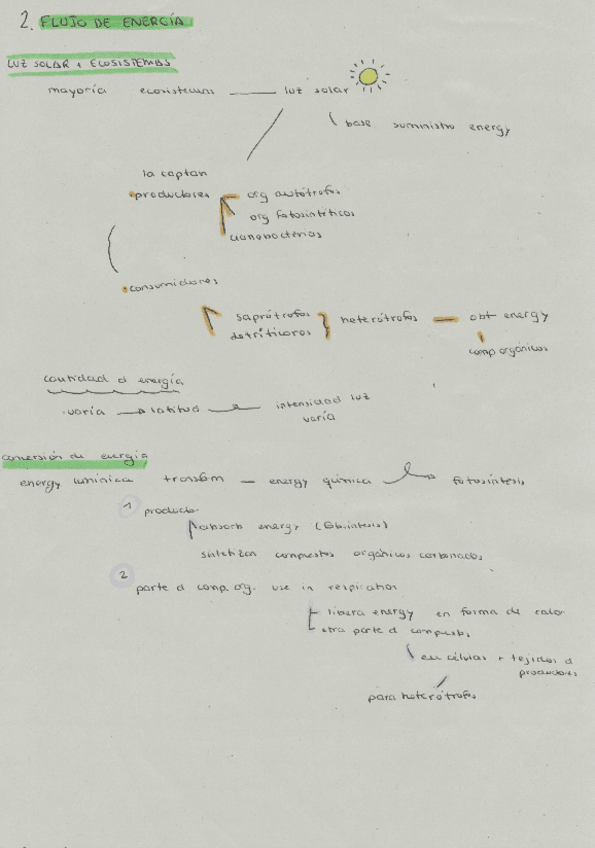 2. FLUJO DE ENERGÍA
LUZ SOLAR + ECOSISTEMAS
mayoría ecosistemas luz solar
base suministro energy
la captan
productores org autótrofos
org fotosintéticos
cianobacterias
consumidores
saprótrofos heterótrofos obt energy
detritívoros
comp orgánicos
cantidad d energía
varía latitud intensidad luz
varía
conversión de energía
energy lumínica transfom energy química fotosíntesis
1 productor
absorb energy (fotosíntesis)
sintetizan compuestos orgánicos carbonados
2 parte d comp. org. use in respiration
libera energy en forma de calor
otra parte d compuestos
en células + tejidos d
productores
para heterótrofos